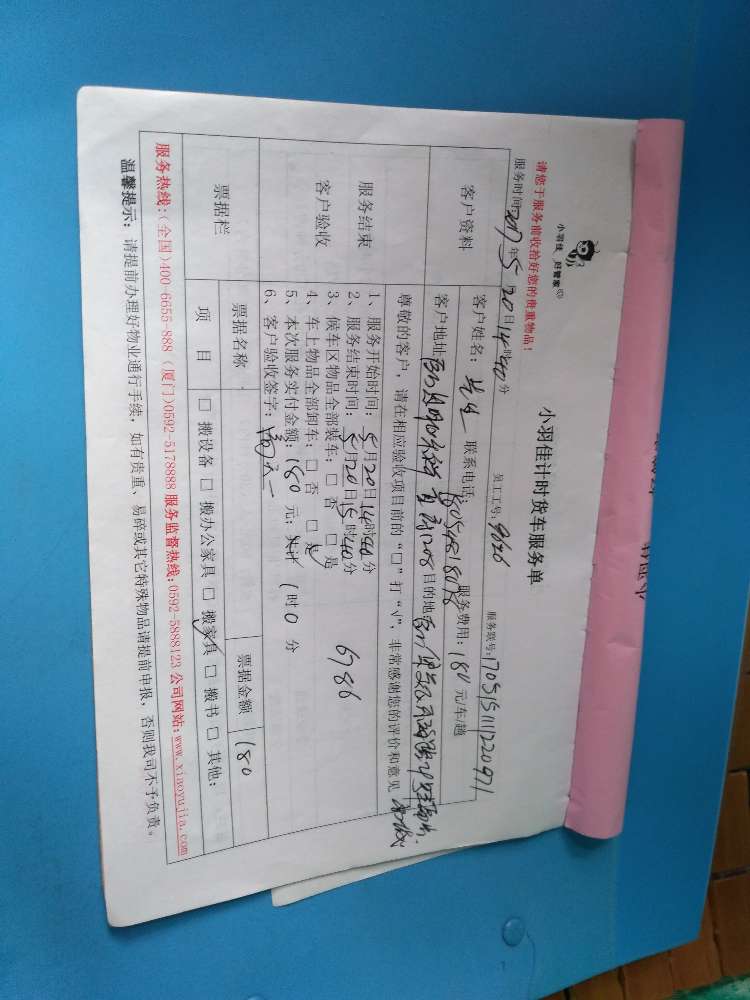 小羽佳 好管家
小羽佳计时货车服务单
请您于服务前收拾好您的贵重物品!
服务时间:2017年5月20日14时40分 员工工号:9626 服务联号:170515111220971
客户资料
客户姓名: 联系电话: 服务费用:180元/车/趟
客户地址: 目的地
尊敬的客户,请在相应验收项目前的“□”打“√”,非常感谢您的评价和意见
服务结束
客户验收
1、服务开始时间:5月20日14时40分
2、服务结束时间:5月20日15时40分
3、候车区物品全部装车:□ 否 □ 是
4、车上物品全部卸车:□ 否 □ 是
5、本次服务实付金额:180元;共计 1时0分
6、客户验收签字:
6786
票据栏
票据名称 票据金额 180
项 目 □ 搬设备 □ 搬办公家具 □ 搬家具 □ 搬书 □ 其他:
服务热线:(全国)400-6655-888 (厦门)0592-5178888 服务监督热线:0592-5888123 公司网站:www.xiaoyujia.com
温馨提示: 请提前办理好物业通行手续,如有贵重、易碎或其它特殊物品请提前申报,否则我司不予负责。